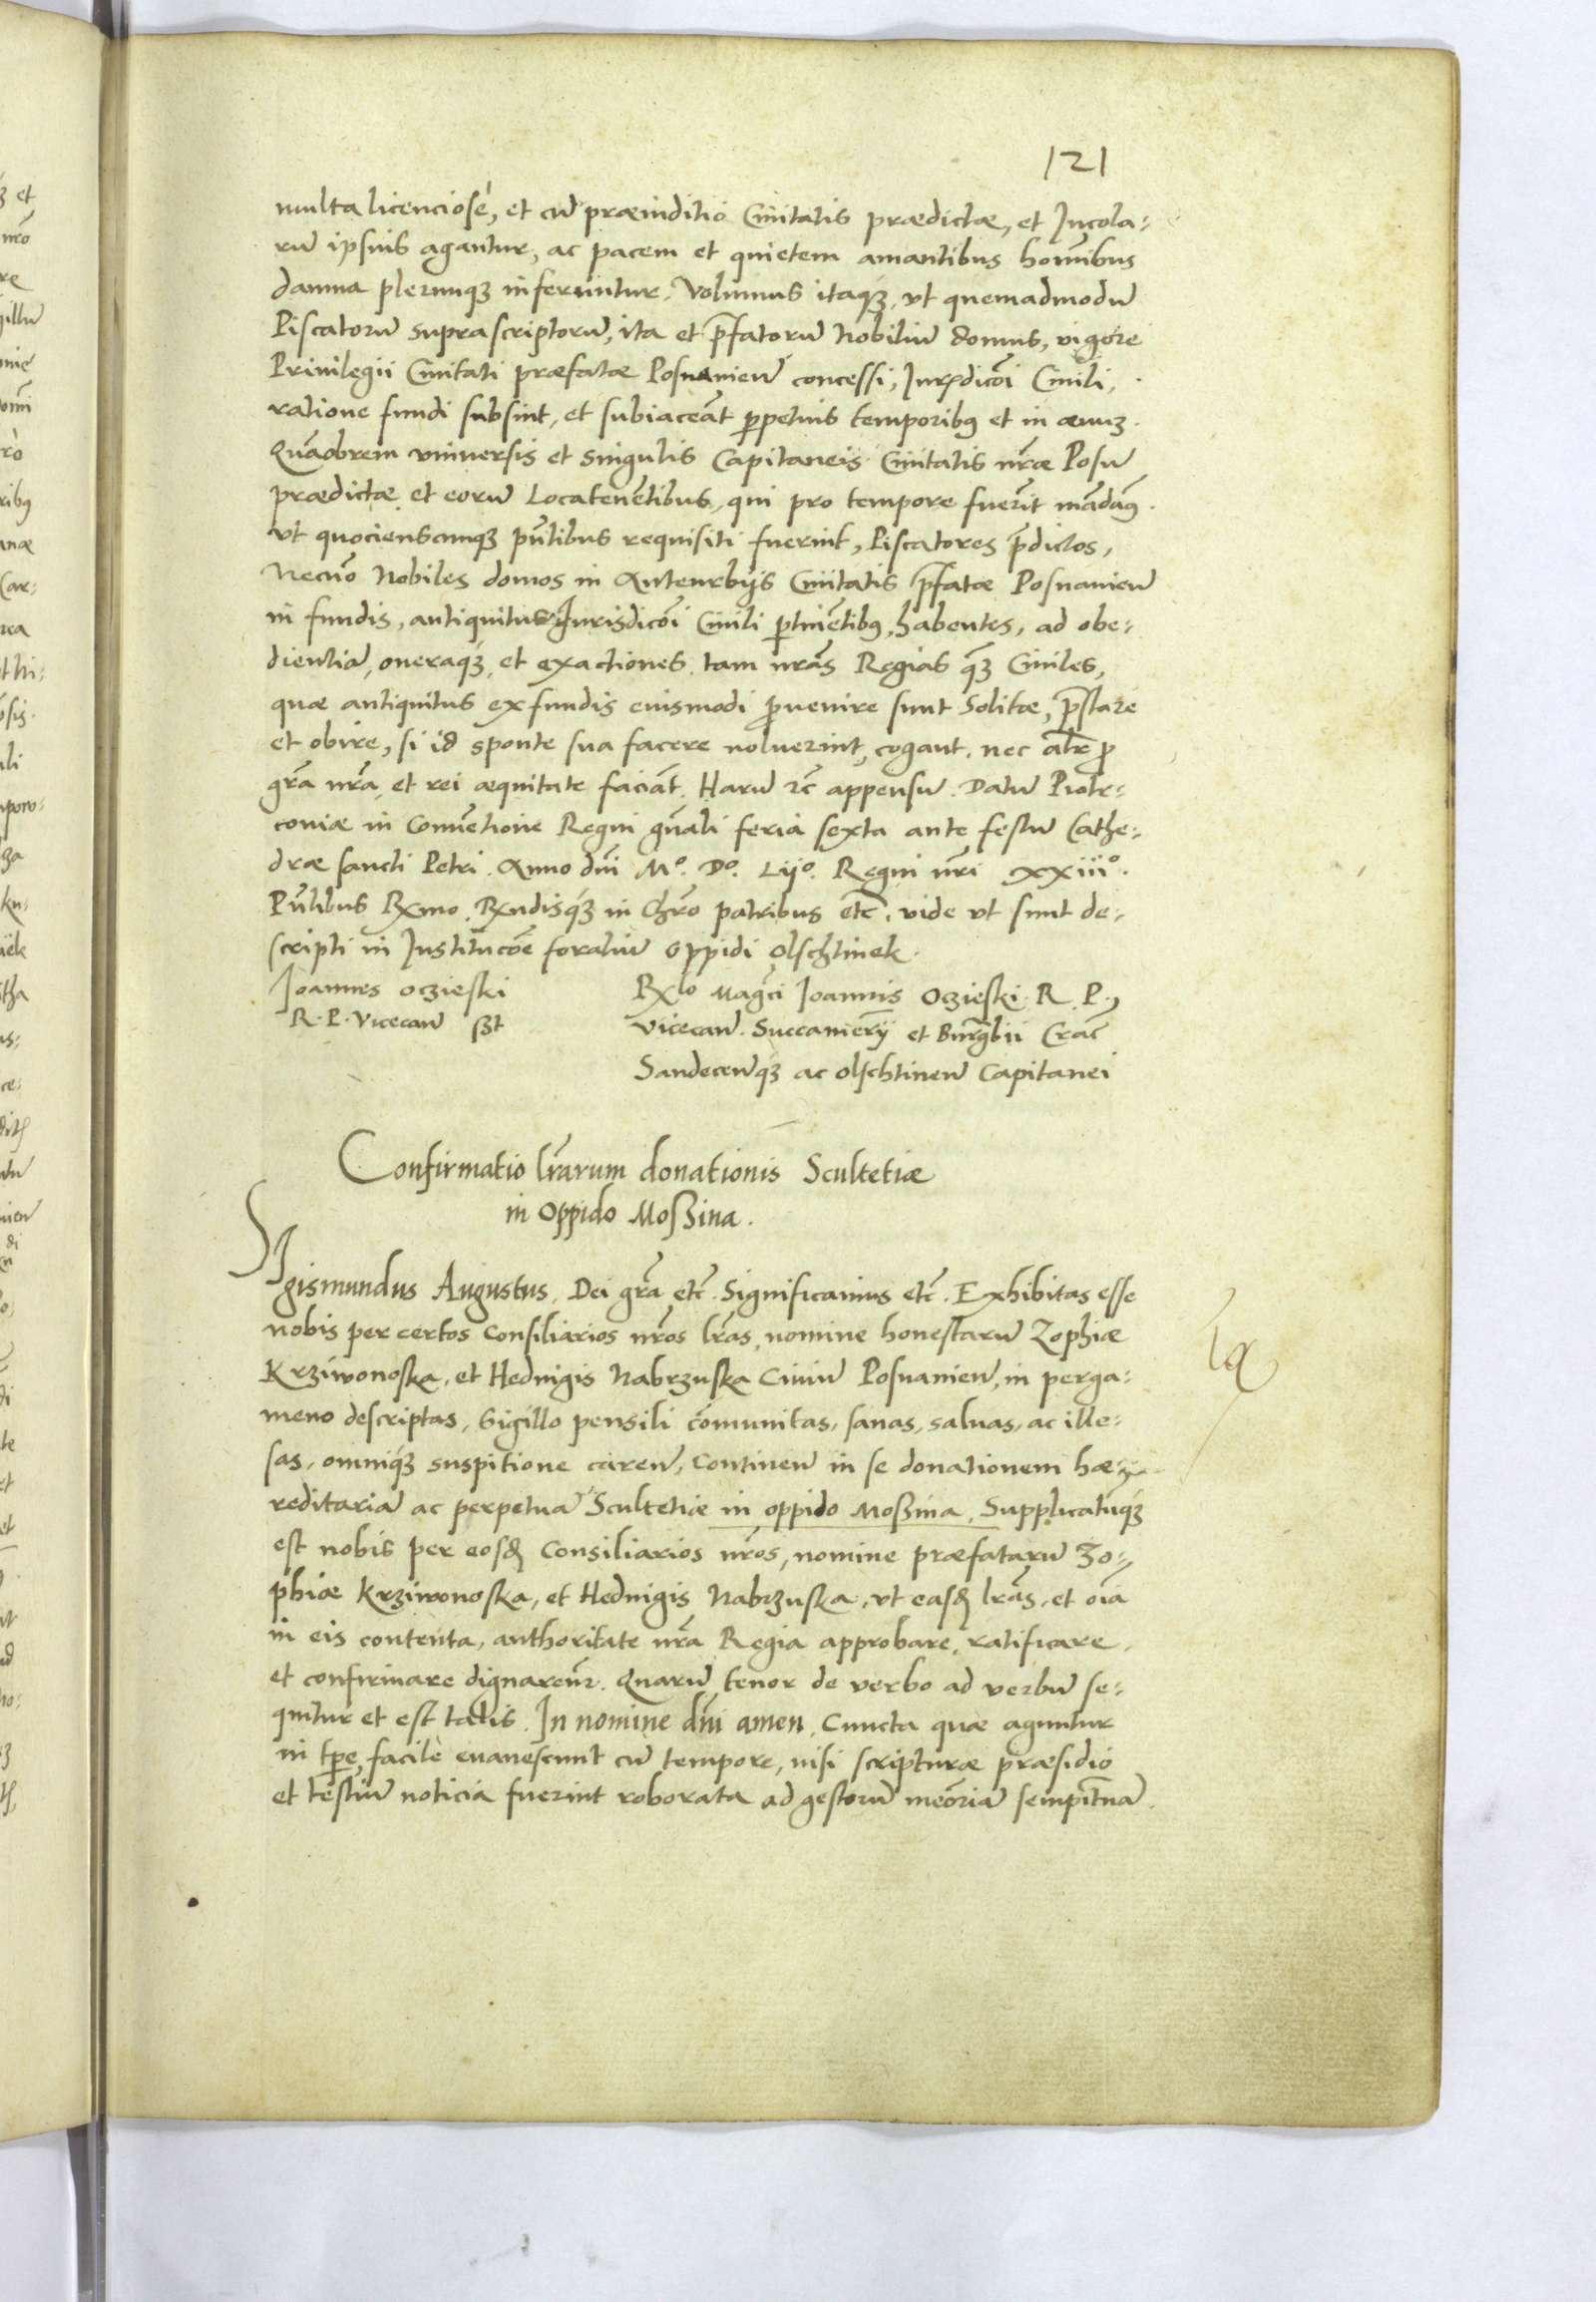 121
multa licenciose, et cū præiuditio Ciuitatis prædictæ, et Incola-
rū ipsius agantur, ac pacem et quietem amantibus homībus
damna plerunqꝫ inferuntur. Volumus itaqꝫ, vt quemadmodū
Piscatorū suprascriptorū, ita et p̄fatorū Nobiliū domus, vigore
Priuilegii Ciuitati præfatæ Posnanieñ concessi, Jurᵢdicōi Ciuili,
ratione fundi subsint, et subiaceāt ꝑpetuis temporibꝰ et in æuuꝫ.
Quāobrem vniuersis et singulis Capitaneis Ciuitatis nr̄æ Posñ
prædictæ et eorū Locatenētibus, qui pro tempore fuerīt mādamꝰ
vt quociensꝯunqꝫ pn̄tibus requisiti fuerint, Piscatores p̄dictos,
Necnō Nobiles domos in Anteurbijs Ciuitatis p̄fatæ Posnanieñ
in fundis, antiquitus Jurisdicōi Ciuili ꝑtinētibꝰ, habentes, ad obe-
dientiā, oneraqꝫ, et exactiones tam nr̄as Regias qꝫ̄ Ciuiles,
quæ antiquitus ex fundis eiusmodi ꝓuenire sunt Solitæ, p̄stare
et obire, si id sponte sua facere noluerint, cogant. nec alr̄ ꝓ
gr̄a nr̄a, et rei æquitate faciāt. Harū ꝛc̄ appensū. Datū Piotr-
couiæ in Conuētione Regni gn̄ali feria sexta ante festū Cathe-
dræ sancti Petri. Anno dn̄i Mº. Dº. Lijº. Regni nr̄i xxiiiº.
Pn̄tibus Rx̄mo, Rx̄ndisqꝫ in Chrō patribus etc̄. vide vt sunt de-
scripti in Institucōe foraliū oppidi Olschtinek.
Joannes Oczieski
R. P. Vicecañ sst
Rxlō Magc̄i Joannis Oczieski. R. P.,
Vicecañ. Succamer̄ij et Burgr̄bii Crac̄
Sandeceñqꝫ ac Olschtineñ Capitanei
Confirmatio lr̄arum donationis Scultetiæ
in Oppido Moßina.
Sigismundus Augustus, Dei gr̄a etc̄. Significamus etc̄. Exhibitas esse
nobis per certos Consiliarios nr̄os lr̄as, nomine honestarū Zophiæ
Krziwonoska, et Heduigis Nabrzuska Ciuiū Posnanieñ, in perga-
meno descriptas, Sigillo pensili cōmunitas, sanas, saluas, ac ille-
sas, omniqꝫ suspitione careñ, Contineñ in se donationem hæ-
reditariā ac perpetuā Scultetiæ in oppido Moßina, Supplicatūqꝫ
est nobis per eosd Consiliarios nr̄os, nomine præfatarū Zo-
phiæ Krziwonoska, et Heduigis Nabrzuska, vt easd lr̄as, et oīa
in eis contenta, authoritate nr̄a Regia approbare, ratificare,
et confirmare dignaremꝛ. Quarū tenor de verbo ad verbū se-
quitur et est talis. In nomine dn̄i amen. Cuncta quæ aguntur
in tꝑe, facile euanescunt cū tempore, nisi scripturæ præsidio
et testiū noticia fuerint roborata ad gestorū meōriā sempit̄nā.